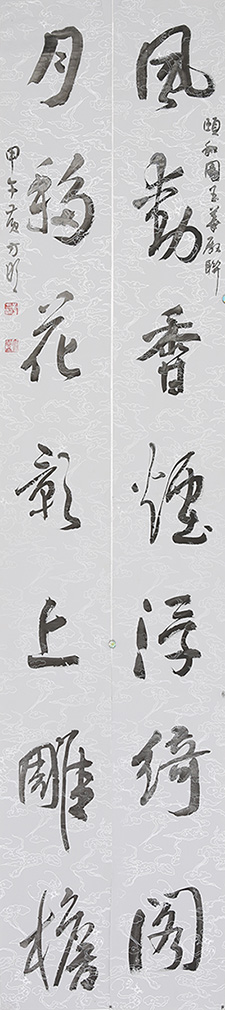 頤和園玉華殿聯
風動香煙浮綺閣
月移花影上雕檐
甲午